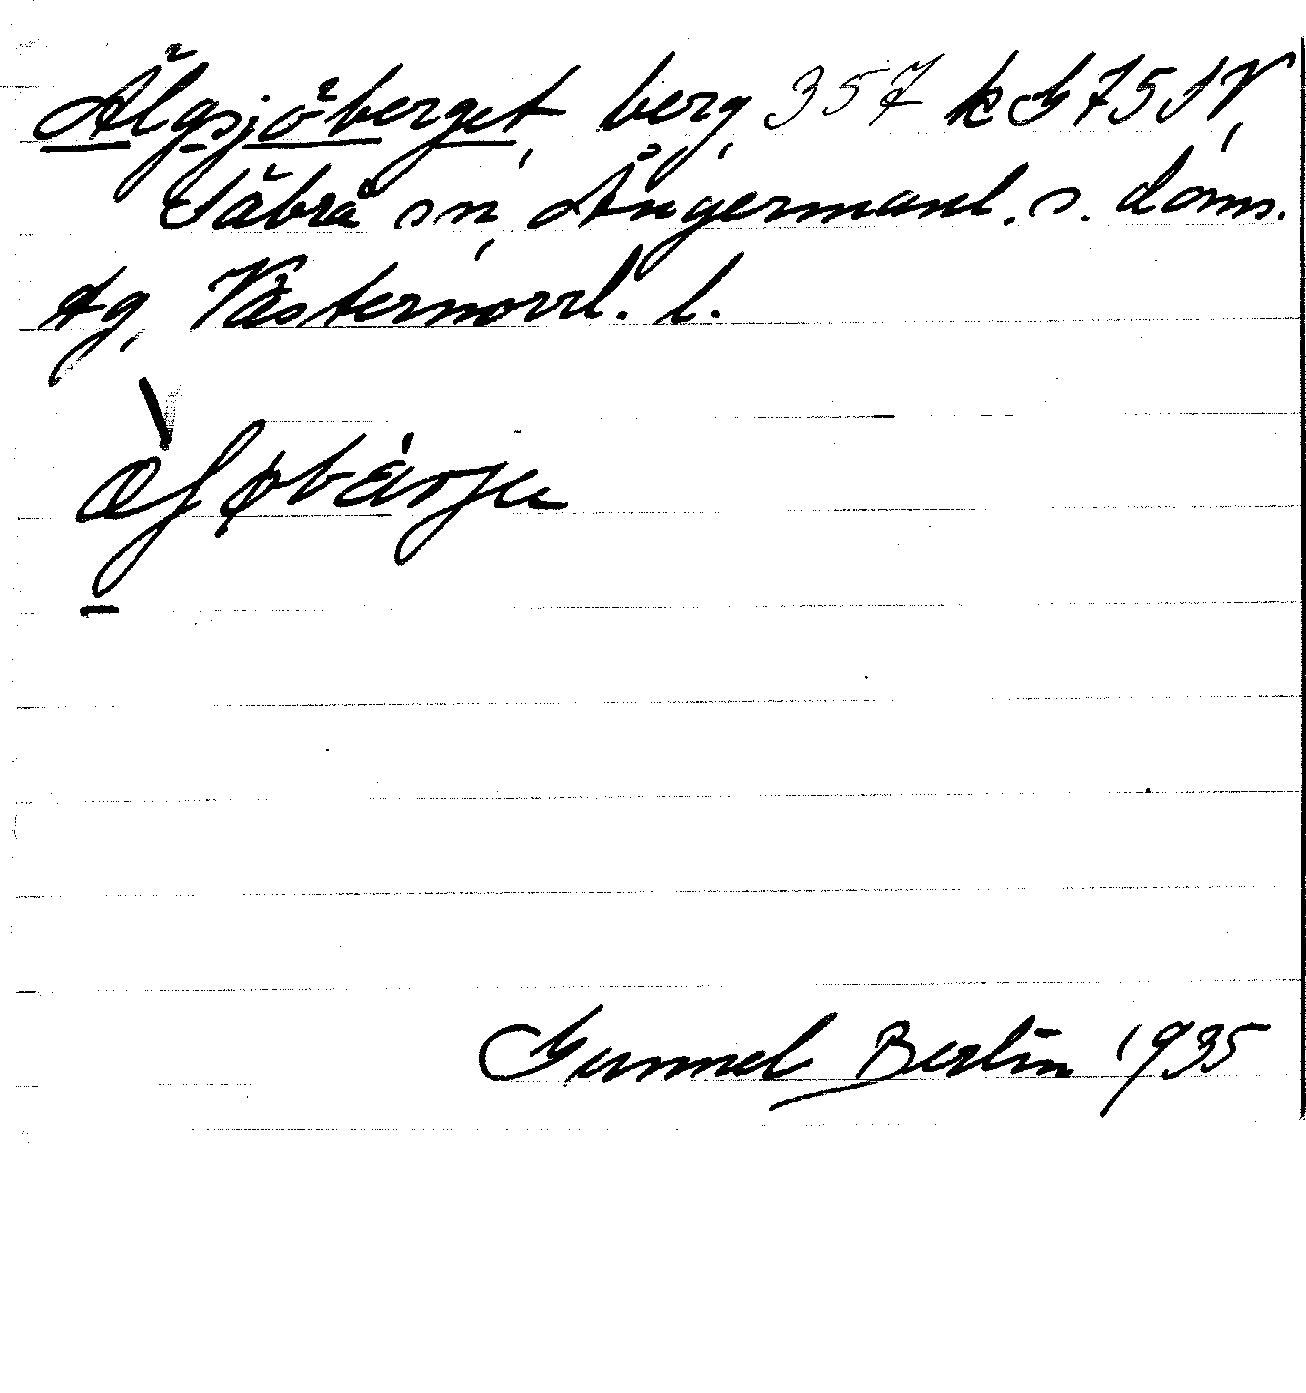 Älgsjöberget, berg, 357 k G 75 SV,
Säbrå sn, Ångermanl. s. doms.
ag, Västernorrl. l.
Gunnel Berlin 1935